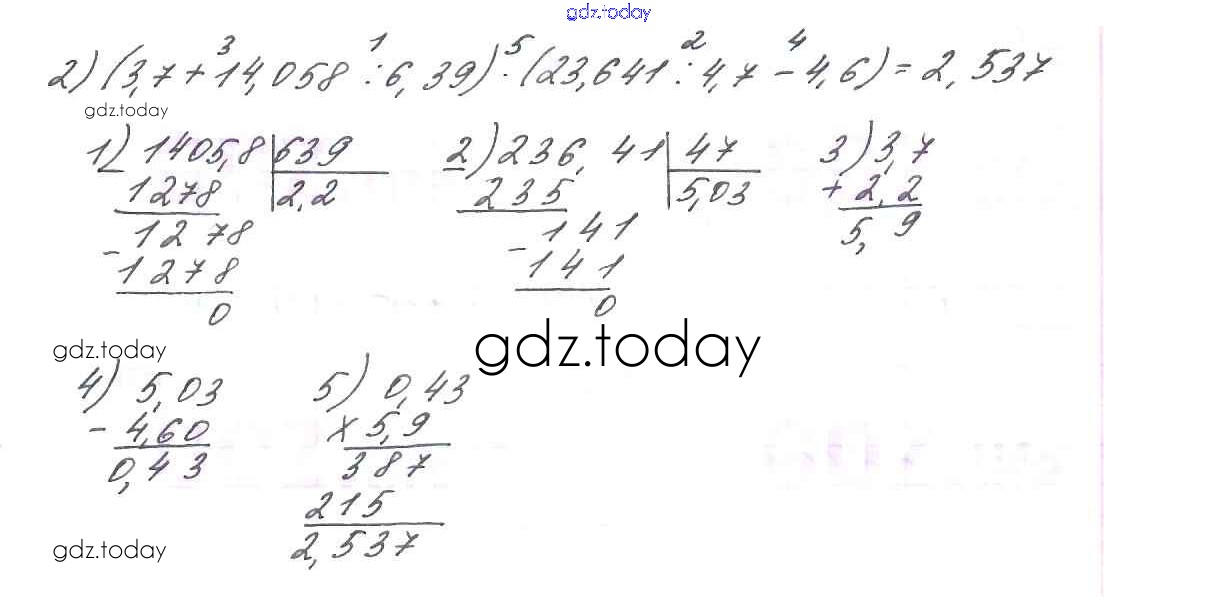 gdz.today
3 1 5 2 4
2) (3,7 + 14,058 : 6,39) · (23,641 : 4,7 - 4,6) = 2,537
gdz.today
1) 1405,8 | 639
1278 | 2,2
- 1278
1278
0
2) 236,41 | 47
235 | 5,03
- 141
141
0
3) 3,7
+ 2,2
5,9
gdz.today
gdz.today
4) 5,03
- 4,60
0,43
5) 0,43
× 5,9
387
215
2,537
gdz.today